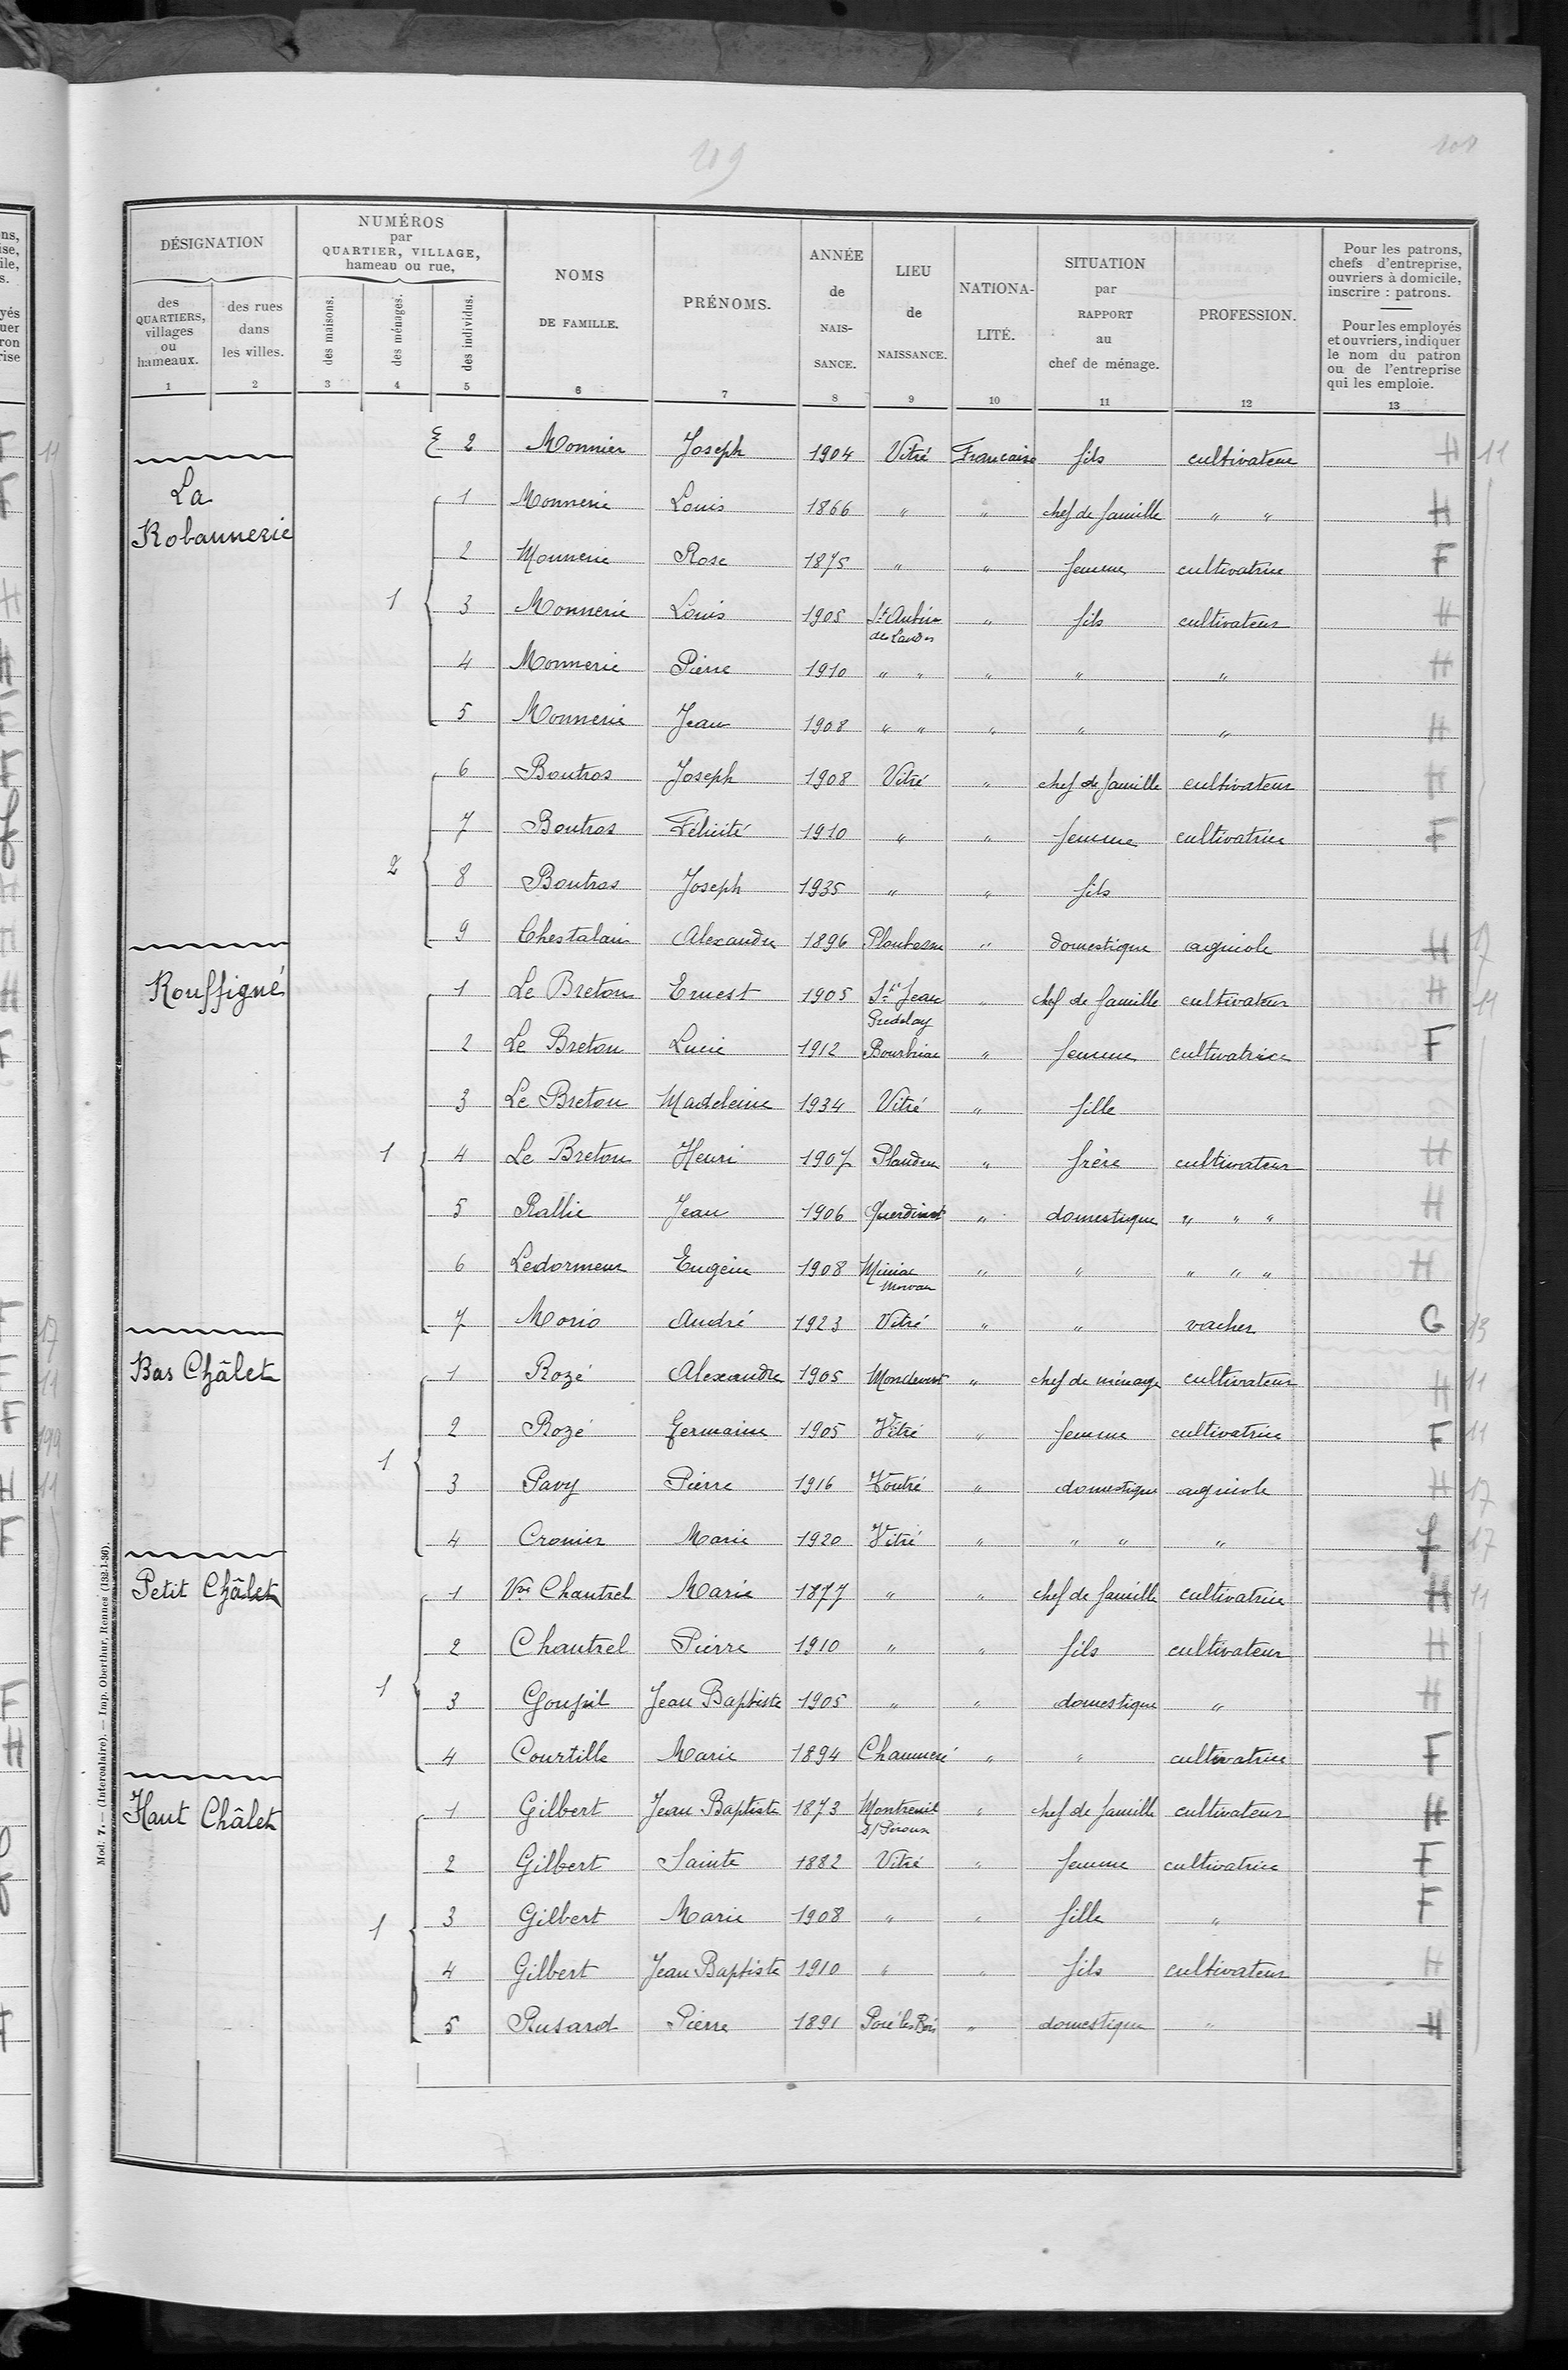 109
DÉSIGNATION
des QUARTIERS, villages ou hameaux. 1
des rues dans les villes. 2
NUMÉROS par QUARTIER, VILLAGE, hameau ou rue,
des maisons. 3
des ménages. 4
des individus. 5
NOMS DE FAMILLE. 6
PRÉNOMS. 7
ANNÉE de NAIS-SANCE. 8
LIEU de NAISSANCE. 9
NATIONA-LITÉ. 10
SITUATION par RAPPORT au chef de ménage. 11
PROFESSION. 12
Pour les patrons, chefs d'entreprise, ouvriers à domicile, inscrire : patrons.
Pour les employés et ouvriers, indiquer le nom du patron ou de l'entreprise qui les emploie. 13
2 Monnier Joseph 1904 Vitré Francaise fils cultivateur H 11
La Robannerie
1 Monnerie Louis 1866 " " chef de famille " " H
2 Monnerie Rose 1875 " " femme cultivatrice F
1 3 Monnerie Louis 1905 St Aubin des Landes " fils cultivateur H
4 Monnerie Pierre 1910 " " " " " H
5 Monnerie Jean 1908 " " " " " H
6 Boutros Joseph 1908 Vitré " chef de famille cultivateur H
7 Boutros Félicité 1910 " " femme cultivatrice F
2 8 Boutros Joseph 1935 " " fils
9 Chestalain Alexandre 1896 " domestique agricole H 17
Rouffigné
1 Le Breton Ernest 1905 St Jean " chef de famille cultivateur H 11
2 Le Breton Lucie 1912 Bourbriac " femme cultivatrice F
3 Le Breton Madeleine 1934 Vitré " fille
1 4 Le Breton Henri 1907 " frère cultivateur H
5 Rallie Jean 1906 " domestique " " " H
6 Ledormeur Eugène 1908 Miniac Morvan " " " " " H
7 Morio André 1923 Vitré " " vacher G 13
Bas Châlet
1 Rozé Alexandre 1905 Mondevert " chef de ménage cultivateur H 11
2 Rozé Germaine 1905 Vitré " femme cultivatrice F 11
1 3 Pavy Pierre 1916 Voutré " domestique agricole H 17
4 Cronier Marie 1920 Vitré " " " " f 17
Petit Châlet
1 Vve Chantrel Marie 1877 " " chef de famille cultivatrice H 11
2 Chantrel Pierre 1910 " " fils cultivateur H
1 3 Goupil Jean Baptiste 1905 " " domestique " H
4 Courtille Marie 1894 Chaumeré " " cultivatrice F
Haut Châlet
1 Gilbert Jean Baptiste 1873 Montreuil s/ Pérouse " chef de famille cultivateur H
2 Gilbert Sainte 1882 Vitré " femme cultivatrice F
1 3 Gilbert Marie 1908 " " fille " F
4 Gilbert Jean Baptiste 1910 " " fils cultivateur H
5 Rusard Pierre 1891 " domestique " H
Mod. 7. — (Intercalaire). — Imp. Oberthur, Rennes (132-1-36).